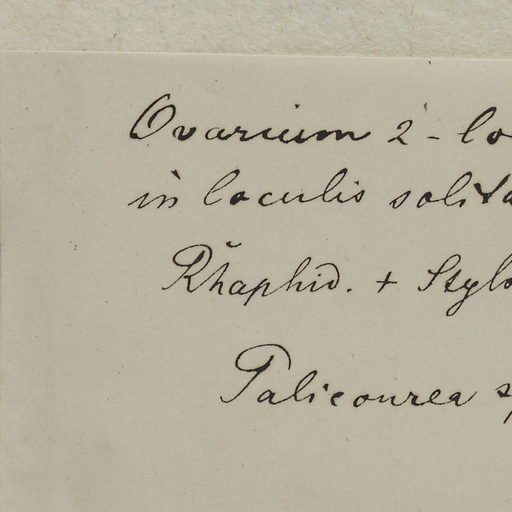 Ovarium 2-lo
in loculis solita
Rhaphid. + Stylo
Palicourea sp